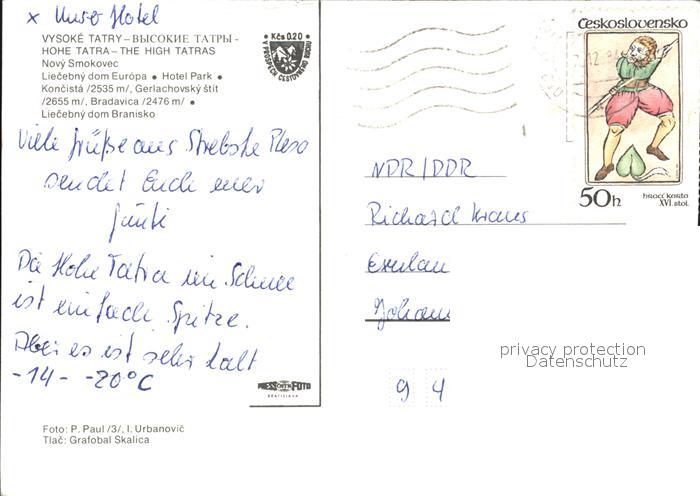 x Unser Hotel
VYSOKÉ TATRY – ВЫСОКИЕ ТАТРЫ -
HOHE TATRA – THE HIGH TATRAS
Nový Smokovec
Liečebný dom Európa • Hotel Park •
Končistá /2535 m/, Gerlachovský štít
/2655 m/, Bradavica /2476 m/ •
Liečebný dom Branisko
• Kčs 0.20 •
V PROSPECH CESTOVNÉHO RUCHU
Viele Grüße aus Strebske Pleso
sendet Euch euer
Günti
Die Hohe Tatra im Schnee
ist einfach Spitze.
Aber es ist sehr kalt
-14 - -20°C
PRESSFOTO
BRATISLAVA
Foto: P. Paul /3/, I. Urbanovič
Tlač: Grafobal Skalica
Československo
50h
HRACÍ KARTA
XVI. stol.
NDR/DDR
Richard Kraus
9 4
privacy protection
Datenschutz